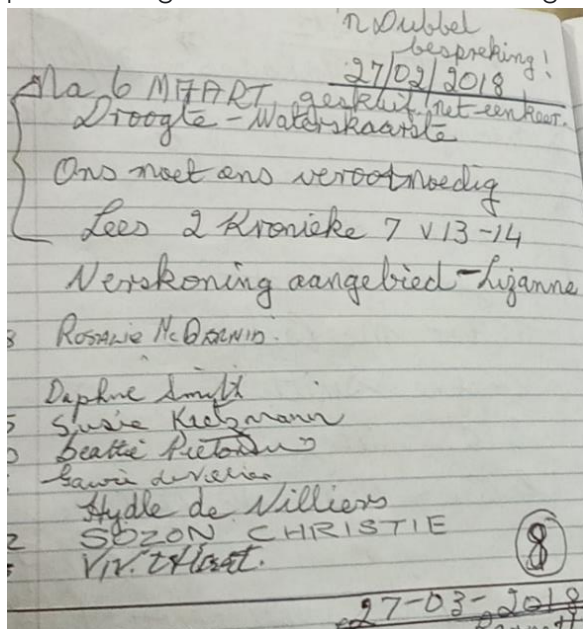 'n Dubbel
bespreking!
27/02/2018
Na 6 MAART, geskuif net eenkeer.
Droogte - Waterskaarste
Ons moet ons verootmoedig
Lees 2 Kronieke 7 v 13-14
Verskoning aangebied - Lizanne
ROSALIE
Daphne Smith
Susie Kretzmann
Beattie
de Villiers
Hydle de Villiers
SOZON CHRISTIE
8
27-03-2018